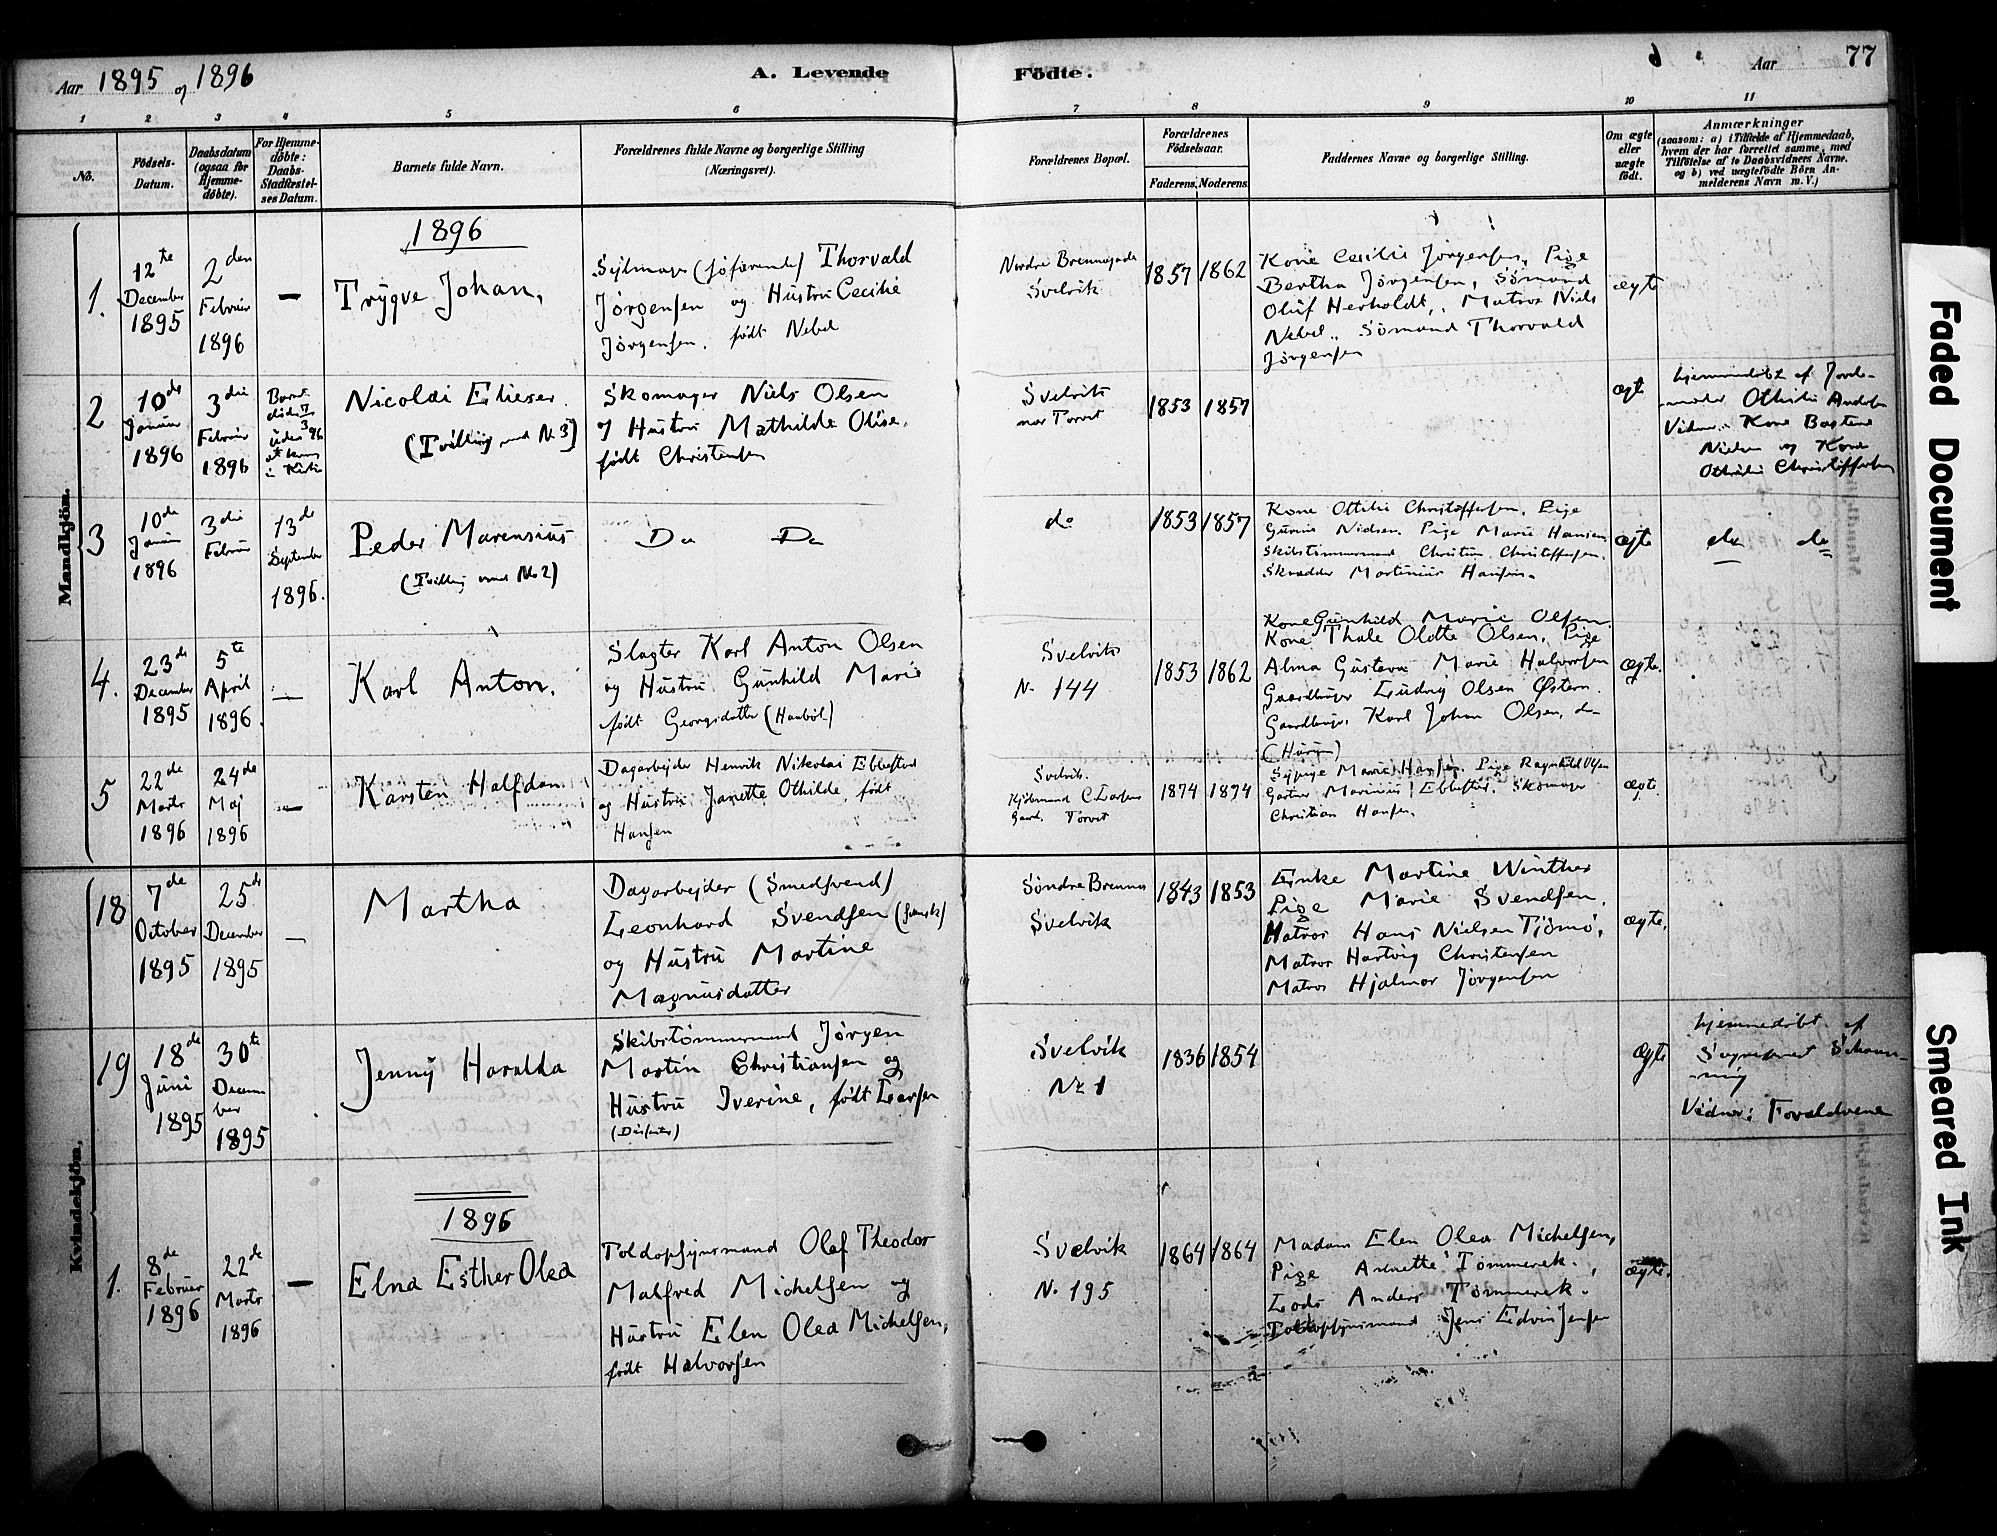 Aar 1895 og 1896
A. Levende
Födte.
Aar
77
1 2 3 4 5 6 7 8 9 10 11
No.
Födsels-
Datum.
Daabsdatum
(ogsaa for
Hjemme-
döbte).
For Hjemme-
döbte:
Daabs-
Stadfæstel-
ses Datum.
Barnets fulde Navn.
Forældrenes fulde Navne og borgerlige Stilling
(Næringsvei).
Forældrenes Bopæl.
Forældrenes
Födselsaar.
Faderens. Moderens.
Faddernes Navne og borgerlige Stilling.
Om ægte
eller
uægte
födt.
Anmærkninger
(saasom: a) i Tilfælde af Hjemmedaab,
hvem der har forrettet samme, med
Tilföielse af to Daabsvidners Navne.
og b) ved uægtefödte Börn An-
melderens Navn m. V.)
Mandkjön.
1896
1.
12te
December
1895
2den
Februar
1896
—
Trygve Johan,
Sejlmager (söfarende) Thorvald
Jörgensen og Hustru Cecilie
Jörgensen. født Nebel
Nordre Brennegade
Svelvik
1857 1862
Kone Cecilie Jörgensen, Pige
Bertha Jörgensen, Sömand
Oluf Herholdt, Matros Niels
Nebel, Sömand Thorvald
Jörgensen
ægte
2
10de
Januar
1896
3die
Februar
1896
Barnet
döde
Nicolai Elieser.
(Tvilling med No 3)
Skomager Niels Olsen
og Hustru Mathilde Olise,
født Christensen
Svelvik
nær Torvet
1853 1857
ægte
hjemmedöbt af Jord-
moder Othilie
Vidner: Kone
Nielsen og Kone
Othilie Christoffersen
3
10de
Januar
1896
3die
Februar
13de
September
1896.
Peder Marensius
(Tvilling med No 2)
Do Do
do
1853 1857
Kone Ottilie Christoffersen, Pige
Nielsen. Pige Marie Hansen
Skibstømmermand Christian Christoffersen.
Skrædder Martinius Hansen.
ægte
do do
4.
23de
December
1895
5te
April
1896.
—
Karl Anton.
Slagter Karl Anton Olsen
og Hustru Gunhild Marie
født Georgsdatter
Svelvik
N. 144
1853 1862
Kone Gunhild Marie Olsen.
Kone Thale Oldte Olsen, Pige
Alma Gustava Marie Halvorsen
Gaardbruger Ludvig Olsen Østern.
Gaardbruger Karl Johan Olsen, do
(Hurum)
ægte.
5
22de
Marts
1896
24de
Maj
1896
—
Karsten Halfdan
Dagarbejder Henrik Nikolai Ebbestad
og Hustru Janette Othilde, født
Hansen
Svelvik.
Kjöbmand C. Larsens
Gaard. Torvet
1874 1874
Sypige Marie Hansen. Pige Ragnhild Olsen
Gartner Marinius Ebbestad. Skomager
Christian Hansen.
ægte.
Kvindekjön.
18
7de
October
1895
25de
December
1895
—
Martha
Dagarbejder (Smedsvend)
Leonhard Svendsen (Svensk)
og Hustru Martine
Magnusdatter
Söndre Brenna
Svelvik
1843 1853
Enke Martine Winther
Pige Marie Svendsen.
Matros Hans Nielsen Tjömö,
Matros Hartvig Christensen
Matros Hjalmar Jörgensen
ægte.
19
18de
Juni
1895
30te
Decem
ber
1895
Jenny Haralda
Skibstömmermand Jörgen
Martin Christiansen og
Hustru Iverine, født Larsen
(Dissenter)
Svelvik
No 1
1836 1854
ægte
hjemmedöbt af
Sognepræst Schaan-
ning
Vidner: Forældrene
1896
1.
8de
Februar
1896
22de
Marts
1896
—
Elna Esther Olea
Toldopsynsmand Olaf Theodor
Malfred Michelsen og
Hustru Elen Olea Michelsen,
født Halvorsen
Svelvik
N. 195
1864 1864
Madam Elen Olea Michelsen,
Pige Annette Tömmerek.,
Lods Anders Tömmerek.
Toldopsynsmand Jens Edvin Jensen
ægte.
Faded Document
Smeared Ink